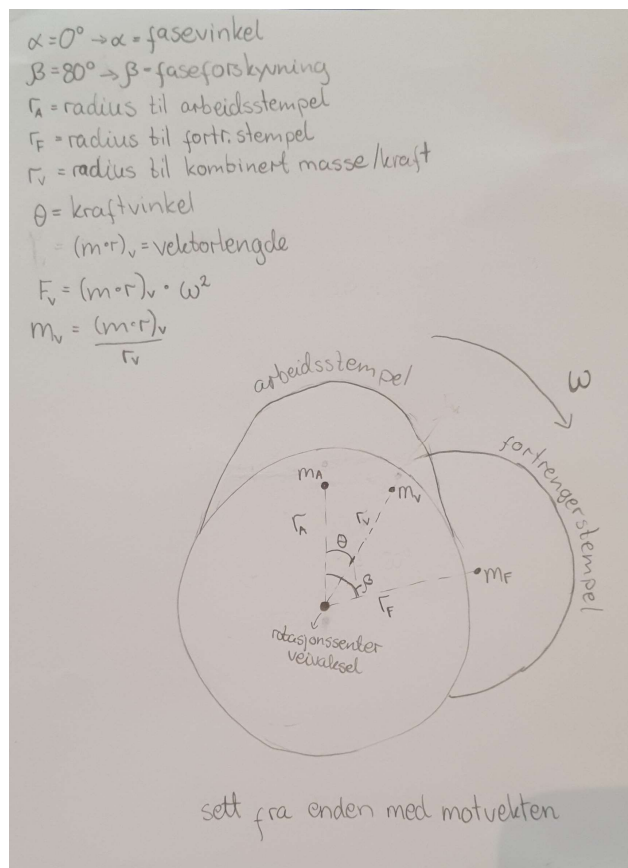 α=0° → α = fasevinkel
β=80° → β-faseforskyvning
r_A = radius til arbeidsstempel
r_F = radius til fortr. stempel
r_V = radius til kombinert masse/kraft
θ = kraftvinkel
= (m·r)_V = vektorlengde
F_V = (m·r)_V · ω²
m_V = (m·r)_V / r_V
arbeidsstempel
ω
fortrengerstempel
m_A
m_V
r_A
r_V
θ
β
m_F
r_F
rotasjonssenter
veivaksel
sett fra enden med motvekten